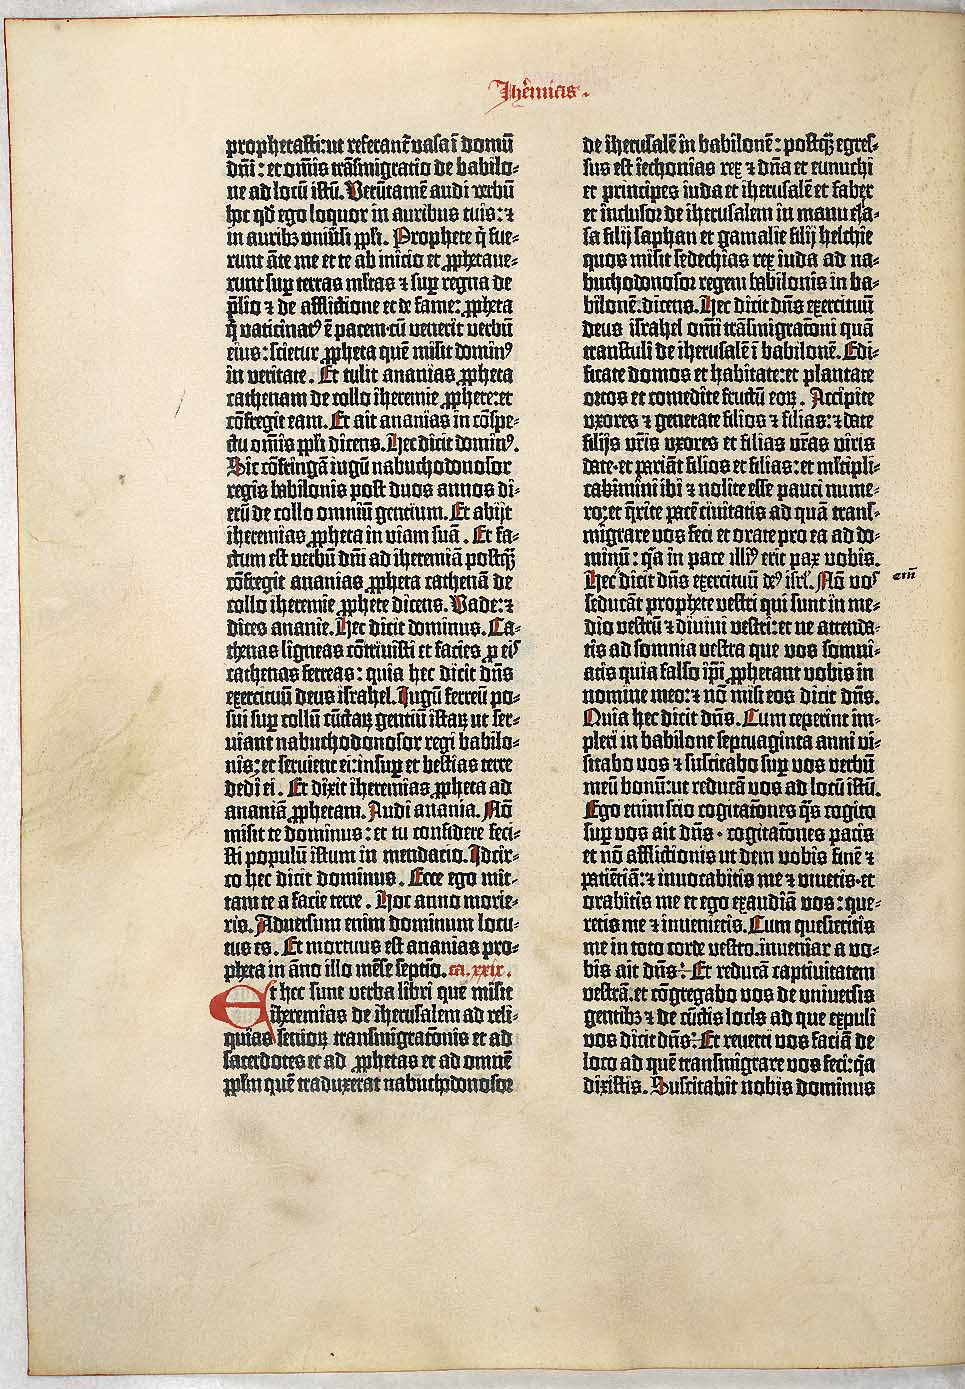 Jheremias.
prophetasti: ut referanť vasa ī domū
dn̄i: et om̄is trāsmigratio de babilo-
ne ad locū istū. Verūtamē audi verbū
hoc qd̄ ego loquor in auribus tuis: ⁊
in aurib⁊ univ̄si ppl̄i. Prophete q̄ fue-
runt āte me et te ab inicio et ꝓphetave-
runt suꝑ terras ml̄tas ⁊ suꝑ regna de
p̄lio ⁊ de afflictione et de fame: ꝓpheta
q̄ vaticinatꝰ ē pacem · cū venerit verbū
eius: scietur ꝓpheta quē misit dominꝰ
in veritate. Et tulit ananias ꝓpheta
cathenam de collo iheremie ꝓphete: et
cōfregit eam. Et ait ananias in cōspe-
ctu om̄is ppl̄i dicens. Hec dicit dominꝰ.
Sic cōfringā iugū nabuchodonosor
regis babilonis post duos annos di-
erū de collo omniū gentium. Et abijt
iheremias ꝓpheta in viam suā. Et fa-
ctum est verbū dn̄i ad iheremiā postq̄⁊
cōfregit ananias ꝓpheta cathenā de
collo iheremie ꝓphete dicens. Vade: ⁊
dices ananie. Hec dicit dominus. Ca-
thenas ligneas cōtrivisti et facies ꝓ eis
cathenas ferreas: quia hec dicit dn̄s
exercituū deus israhel. Jugū ferreū po-
sui suꝑ collū cūctaꝝ gentiū istaꝝ ut ser-
viant nabuchodonosor regi babilo-
nis: et servient ei: insuꝑ et bestias terre
dedi ei. Et dixit iheremias ꝓpheta ad
ananiā ꝓphetam. Audi anania. Nō
misit te dominus: et tu confidere feci-
sti populū istum in mendacio. Idcir-
co hec dicit dominus. Ecce ego mit-
tam te a facie terre. Hoc anno morie-
ris. Adversum enim dominum locu-
tus es. Et mortuus est ananias pro-
pheta in āno illo mēse septīo. ca. xxix.
Et hec sunt verba libri que misit
iheremias de iherusalem ad reli-
quias senioꝝ transmigratōnis et ad
sacerdotes et ad ꝓphetas et ad omnē
ppl̄m quē traduxerat nabuchodonosor
de iherusalē in babilonē: postq̄⁊ egres-
sus est iechonias rex ⁊ dn̄a et eunuchi
et principes iuda et iherusalē et faber
et inclusor de iherusalem in manu ela-
sa filij saphan et gamalie filij helchie
quos misit sedechias rex iuda ad na-
buchodonosor regem babilonis in ba-
bilonē. dicens. Hec dicit dn̄s exercituū
deus israhel om̄i trāsmigratōni quā
transtuli de iherusalē ī babilonē. Edi-
ficate domos et habitate: et plantate
ortos et comedite fructū eoꝝ. Accipite
uxores ⁊ generate filios ⁊ filias: ⁊ date
filijs vr̄is uxores et filias vr̄as viris
date · et pariāt filios et filias: et ml̄tipli-
cabimini ibi ⁊ nolite esse pauci nume-
ro: et q̄rite pacē civitatis ad quā trans-
migrare vos feci et orate pro ea ad do-
minū: q̄a in pace illiꝰ erit pax vobis.
Hec dicit dn̄s exercituū deꝰ isrl̄. Nō vos em̄
seducāt prophete vestri qui sunt in me-
dio vestrū ⁊ divini vestri: et ne attenda-
tis ad somnia vestra que vos somni-
atis quia falso ip̄i ꝓphetant vobis in
nomine meo: ⁊ nō misi eos dicit dn̄s.
Quia hec dicit dn̄s. Cum ceperint im-
pleri in babilone septuaginta anni vi-
sitabo vos ⁊ suscitabo suꝑ vos verbū
meū bonū: ut reducā vos ad locū istū.
Ego enim scio cogitatōnes q̄s cogito
suꝑ vos ait dn̄s · cogitatōnes pacis
et nō afflictionis ut dem vobis finē ⁊
patiētiā: ⁊ invocabitis me ⁊ vivetis · et
orabitis me et ego exaudiā vos: que-
retis me ⁊ invenietis. Cum quesieritis
me in toto corde vestro. inveniar a vo-
bis ait dn̄s: Et reducā captivitatem
vestrā. et cōgregabo vos de universis
gentib⁊ ⁊ de cūctis locis ad que expuli
vos dicit dn̄s: Et reverti vos faciā de
loco ad quē transmigrare vos feci: q̄a
dixistis. Suscitabit nobis dominus